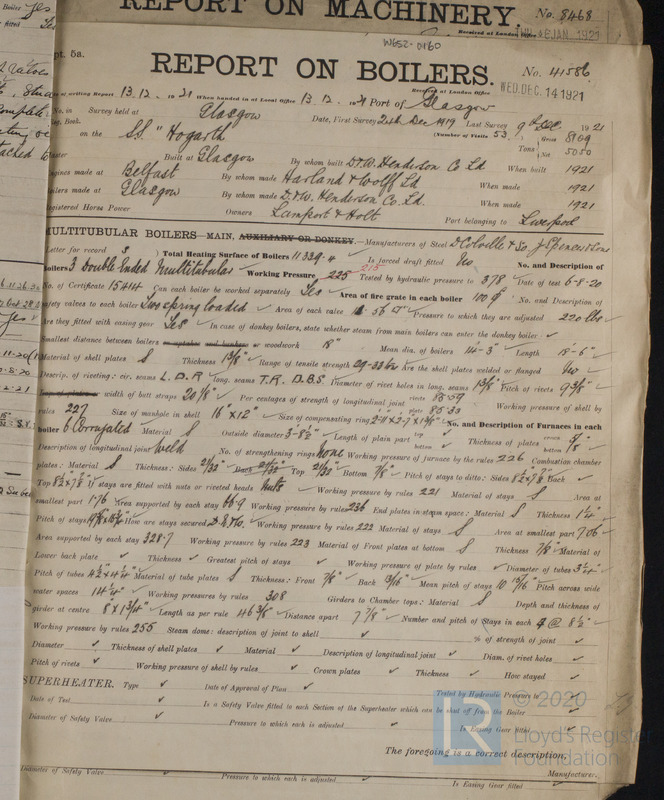 REPORT ON MACHINERY. No. 8468
Received at London Office THU. 6 JAN. 1921
W652-0160
pt. 5a.
REPORT ON BOILERS. No. 41586
Received at London Office WED. DEC. 14 1921
of writing Report 13.12.1921 When handed in at Local Office 13.12.1921 Port of Glasgow
No. in Survey held at Glasgow Date, First Survey 24th Dec 1919 Last Survey 9th Dec 1921
Reg. Book. (Number of Visits 53)
on the S.S. "Hogarth" Tons Gross 8109 Net 5050
Built at Glasgow By whom built D. & W. Henderson Co Ld When built 1921
Engines made at Belfast By whom made Harland & Wolff Ld When made 1921
Boilers made at Glasgow By whom made D. & W. Henderson Co. Ld. When made 1921
Registered Horse Power Owners Lamport & Holt Port belonging to Liverpool
MULTITUBULAR BOILERS—MAIN, AUXILIARY OR DONKEY.—Manufacturers of Steel D Colville & So, J Spencer & Sons
Letter for record S) Total Heating Surface of Boilers 11339.4 Is forced draft fitted No. and Description of
Boilers 3 Double Ended Multitubular Working Pressure 225 215 Tested by hydraulic pressure to 378 Date of test 5-8-20
No. of Certificate 15414 Can each boiler be worked separately Yes Area of fire grate in each boiler No. and Description of
safety valves to each boiler Two spring loaded Area of each valve Pressure to which they are adjusted 220 lbs
Are they fitted with easing gear Yes In case of donkey boilers, state whether steam from main boilers can enter the donkey boiler
Smallest distance between boilers or uptakes and bunkers or woodwork 18" Mean dia. of boilers 14'-3" Length 18'-6"
Material of shell plates S Thickness Range of tensile strength Are the shell plates welded or flanged No
Descrip. of riveting: cir. seams L.D.R long. seams T.R. D.B.S. Diameter of rivet holes in long. seams Pitch of rivets 9 3/8"
Lap of plates or width of butt straps 20 1/8" Per centages of strength of longitudinal joint rivets plate Working pressure of shell by
rules 227 Size of manhole in shell 16" x 12" Size of compensating ring No. and Description of Furnaces in each
boiler 6 Corrugated Material S Outside diameter 3'-8 1/2" Length of plain part top bottom Thickness of plates crown bottom 5/8"
Description of longitudinal joint weld No. of strengthening rings none Working pressure of furnace by the rules 226 Combustion chamber
plates: Material S Thickness: Sides 21/32" Back 21/32" Top 21/32" Bottom 7/8" Pitch of stays to ditto: Sides 8 1/2 x 7 7/8" Back
Top If stays are fitted with nuts or riveted heads Nuts Working pressure by rules 221 Material of stays S Area at
smallest part 1.76 Area supported by each stay 66.9 Working pressure by rules 236 End plates in steam space: Material S Thickness 1 1/4"
Pitch of stays How are stays secured Working pressure by rules 222 Material of stays S Area at smallest part 7.06
Area supported by each stay 328.7 Working pressure by rules 223 Material of Front plates at bottom S Thickness 7/8" Material of
Lower back plate Thickness Greatest pitch of stays Working pressure of plate by rules Diameter of tubes 3 1/4"
Pitch of tubes 4 1/2 x 4 1/4" Material of tube plates S Thickness: Front 7/8" Back 13/16" Mean pitch of stays 10 15/16" Pitch across wide
water spaces 14 1/4" Working pressures by rules 308 Girders to Chamber tops: Material S Depth and thickness of
girder at centre 8 x 1 3/4" Length as per rule 46 3/8" Distance apart 7 7/8" Number and pitch of Stays in each 4 @ 8 1/2"
Working pressure by rules 255 Steam dome: description of joint to shell % of strength of joint
Diameter Thickness of shell plates Material Description of longitudinal joint Diam. of rivet holes
Pitch of rivets Working pressure of shell by rules Crown plates Thickness How stayed
SUPERHEATER. Type Date of Approval of Plan Tested by Hydraulic Pressure to
Date of Test Is a Safety Valve fitted to each Section of the Superheater which can be shut off from the Boiler
Diameter of Safety Valve Pressure to which each is adjusted Is Easing Gear fitted
© 2020
Lloyd's Register
Foundation
The foregoing is a correct description,
Manufacturer.
Diameter of Safety Valve Pressure to which each is adjusted Is Easing Gear fitted